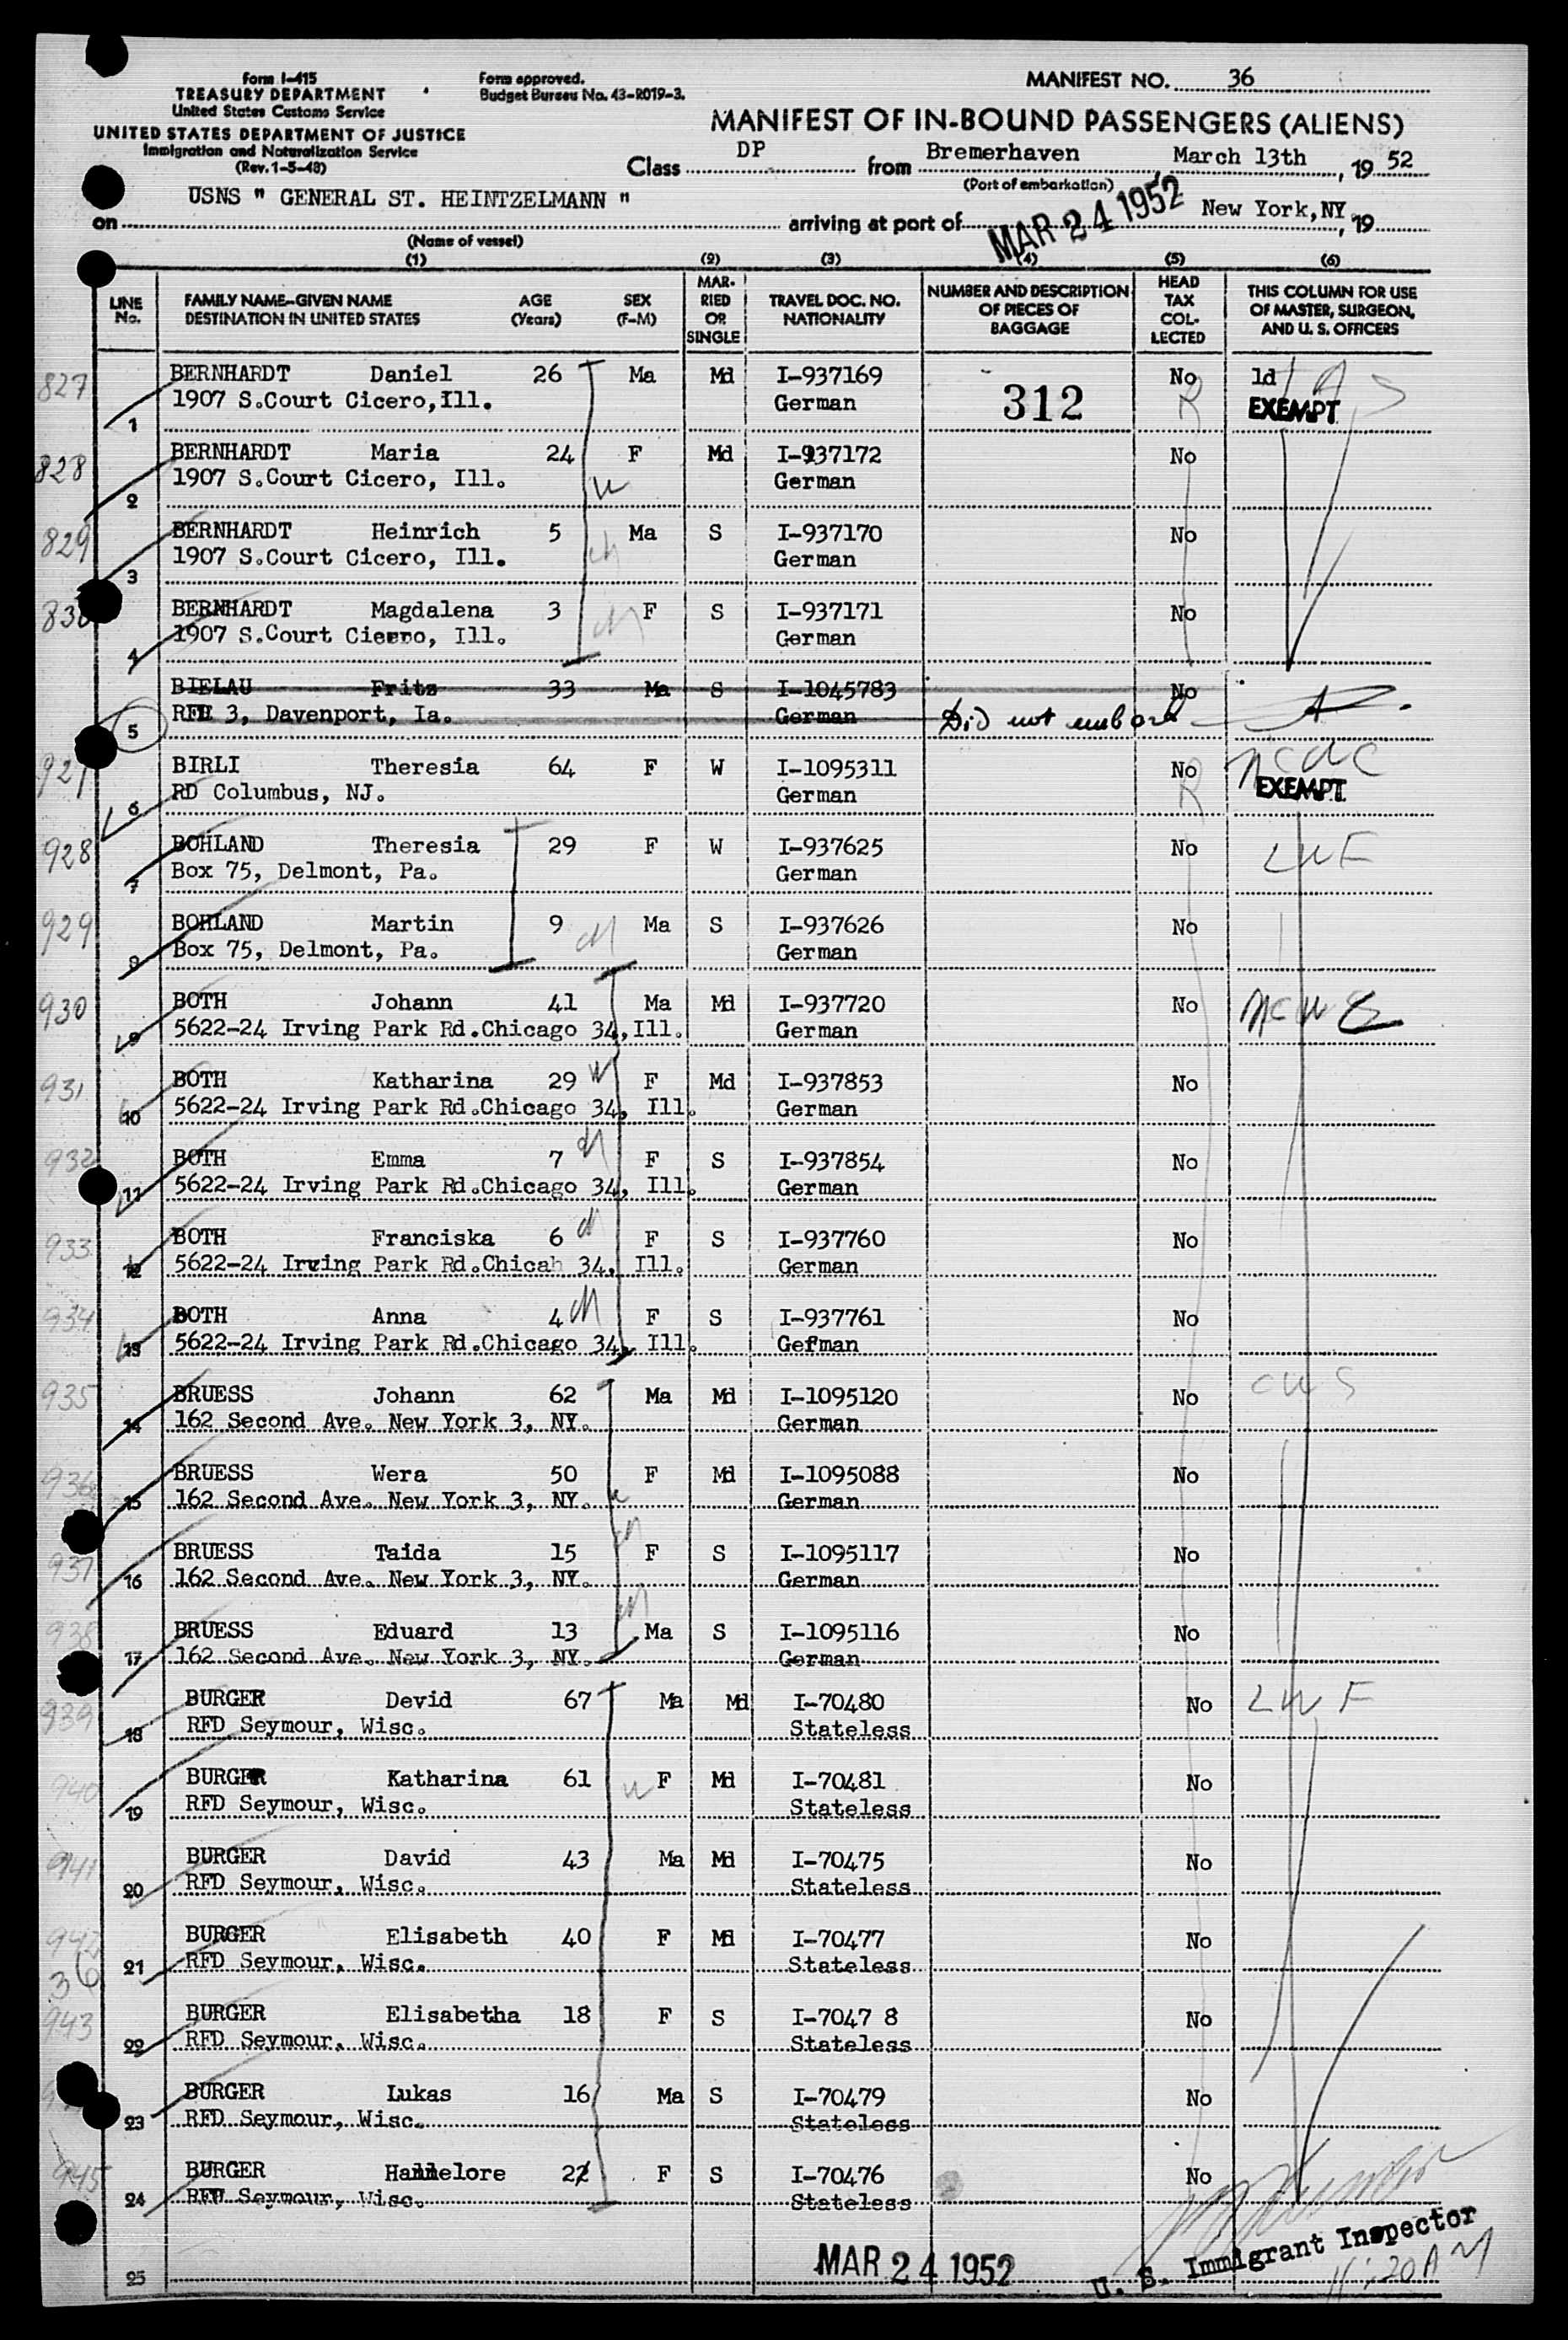 Form I-415
TREASURY DEPARTMENT
United States Customs Service
UNITED STATES DEPARTMENT OF JUSTICE
Immigration and Naturalization Service
(Rev. 1-5-48)
Form approved.
Budget Bureau No. 43-R019-3.
MANIFEST NO. 36
MANIFEST OF IN-BOUND PASSENGERS (ALIENS)
Class DP from Bremerhaven March 13th, 19 52
(Port of embarkation)
on USNS " GENERAL ST. HEINTZELMANN " arriving at port of MAR 24 1952 New York, NY, 19
(Name of vessel)
(1) (2) (3) (4) (5) (6)
LINE No. FAMILY NAME—GIVEN NAME DESTINATION IN UNITED STATES AGE (Years) SEX (F-M) MARRIED OR SINGLE TRAVEL DOC. NO. NATIONALITY NUMBER AND DESCRIPTION OF PIECES OF BAGGAGE HEAD TAX COLLECTED THIS COLUMN FOR USE OF MASTER, SURGEON, AND U. S. OFFICERS
827 1 BERNHARDT Daniel 26 Ma Md I-937169 312 No 1d
1907 S.Court Cicero,Ill. German EXEMPT
828 2 BERNHARDT Maria 24 F Md I-937172 No
1907 S.Court Cicero, Ill. German
829 3 BERNHARDT Heinrich 5 Ma S I-937170 No
1907 S.Court Cicero, Ill. German
830 4 BERNHARDT Magdalena 3 F S I-937171 No
1907 S.Court Cicero, Ill. German
5 BIELAU Fritz 33 Ma S I-1045783 No
RFD 3, Davenport, Ia. German Did not embark
927 6 BIRLI Theresia 64 F W I-1095311 No NCWC
RD Columbus, NJ. German EXEMPT
928 7 BOHLAND Theresia 29 F W I-937625 No LWF
Box 75, Delmont, Pa. German
929 8 BOHLAND Martin 9 Ma S I-937626 No
Box 75, Delmont, Pa. German
930 9 BOTH Johann 41 Ma Md I-937720 No NCWC
5622-24 Irving Park Rd.Chicago 34,Ill. German
931 10 BOTH Katharina 29 F Md I-937853 No
5622-24 Irving Park Rd.Chicago 34, Ill. German
932 11 BOTH Emma 7 F S I-937854 No
5622-24 Irving Park Rd.Chicago 34, Ill. German
933 12 BOTH Franciska 6 F S I-937760 No
5622-24 Irving Park Rd.Chicah 34, Ill. German
934 13 BOTH Anna 4 F S I-937761 No
5622-24 Irving Park Rd.Chicago 34, Ill. German
935 14 BRUESS Johann 62 Ma Md I-1095120 No CWS
162 Second Ave. New York 3, NY. German
936 15 BRUESS Wera 50 F Md I-1095088 No
162 Second Ave. New York 3, NY. German
937 16 BRUESS Taida 15 F S I-1095117 No
162 Second Ave. New York 3, NY. German
938 17 BRUESS Eduard 13 Ma S I-1095116 No
162 Second Ave. New York 3, NY. German
939 18 BURGER Devid 67 Ma Md I-70480 No LWF
RFD Seymour, Wisc. Stateless
940 19 BURGER Katharina 61 F Md I-70481 No
RFD Seymour, Wisc. Stateless
941 20 BURGER David 43 Ma Md I-70475 No
RFD Seymour, Wisc. Stateless
942 21 BURGER Elisabeth 40 F Md I-70477 No
36 RFD Seymour, Wisc. Stateless
943 22 BURGER Elisabetha 18 F S I-7047 8 No
RFD Seymour, Wisc. Stateless
23 BURGER Lukas 16 Ma S I-70479 No
RFD Seymour, Wisc. Stateless
945 24 BURGER Hannelore 22 F S I-70476 No
RFD Seymour, Wisc. Stateless
25 MAR 24 1952 U. S. Immigrant Inspector
11:20 AM